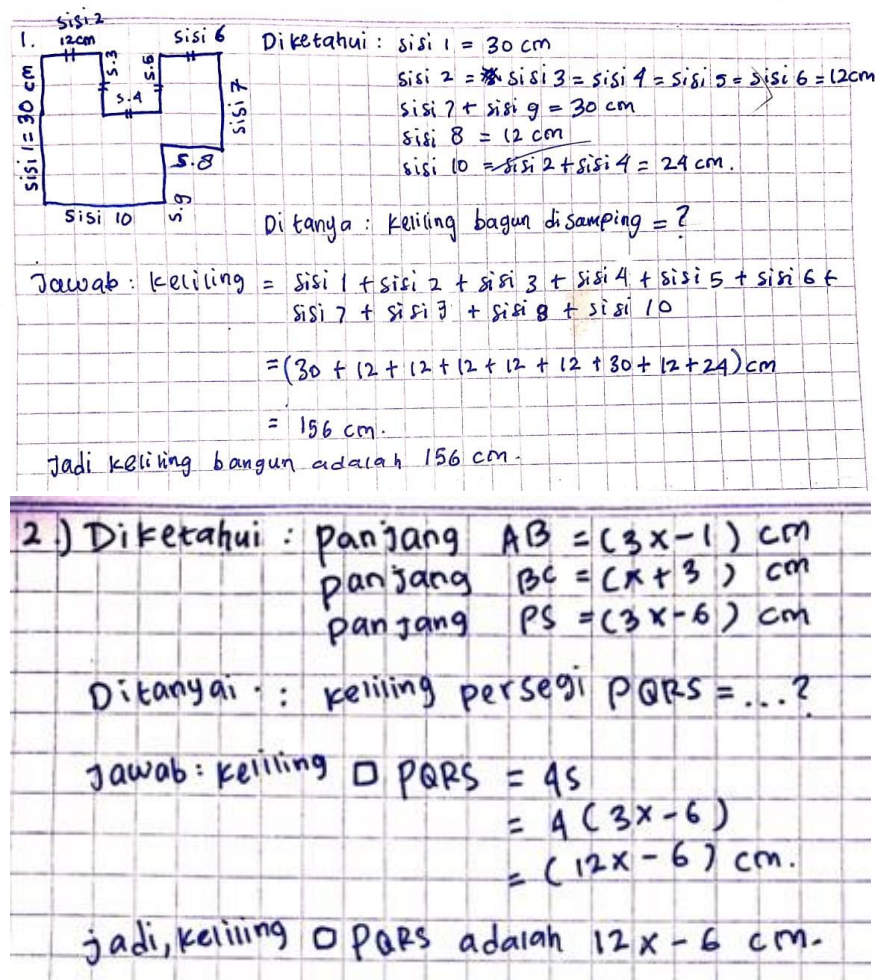 1.
sisi 2
12cm
sisi 6
sisi 1 = 30 cm
s.3
s.4
s.5
sisi 7
s.8
s.9
sisi 10
Diketahui : sisi 1 = 30 cm
sisi 2 = sisi 3 = sisi 4 = sisi 5 = sisi 6 = 12cm
sisi 7 + sisi 9 = 30 cm
sisi 8 = 12 cm
sisi 10 = sisi 2 + sisi 4 = 24 cm.
Ditanya : keliling bagun disamping = ?
Jawab : keliling = sisi 1 + sisi 2 + sisi 3 + sisi 4 + sisi 5 + sisi 6 +
sisi 7 + sisi 9 + sisi 8 + sisi 10
= (30 + 12 + 12 + 12 + 12 + 12 + 30 + 12 + 24) cm
= 156 cm.
Jadi keliling bangun adalah 156 cm.
2.) Diketahui : panjang AB = (3x-1) cm
panjang BC = (x+3) cm
panjang PS = (3x-6) cm
Ditanyai : keliling persegi PQRS = ...?
Jawab : keliling □ PQRS = 4s
= 4 (3x-6)
= (12x - 6) cm.
jadi, keliling □ PQRS adalah 12x - 6 cm.